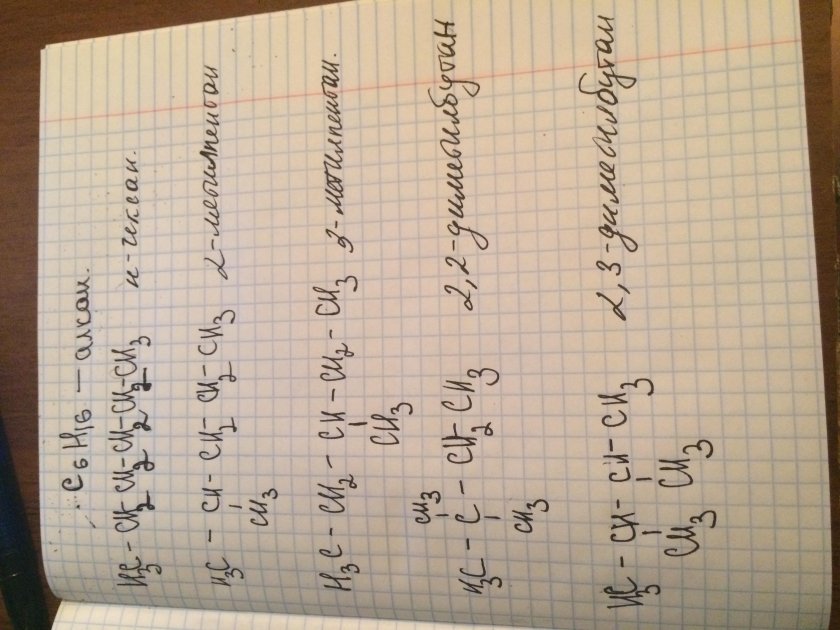 C₆H₁₆ – алкан.
H₃C – CH₂ – CH₂ – CH₂ – CH₂ – CH₃ н-гексан.
H₃C – CH – CH₂ – CH₂ – CH₃ 2-метилпентан
CH₃
H₃C – CH₂ – CH – CH₂ – CH₃ 3-метилпентан.
CH₃
CH₃
H₃C – C – CH₂ – CH₃ 2,2-диметилбутан
CH₃
H₃C – CH – CH – CH₃ 2,3-диметилбутан
CH₃ CH₃